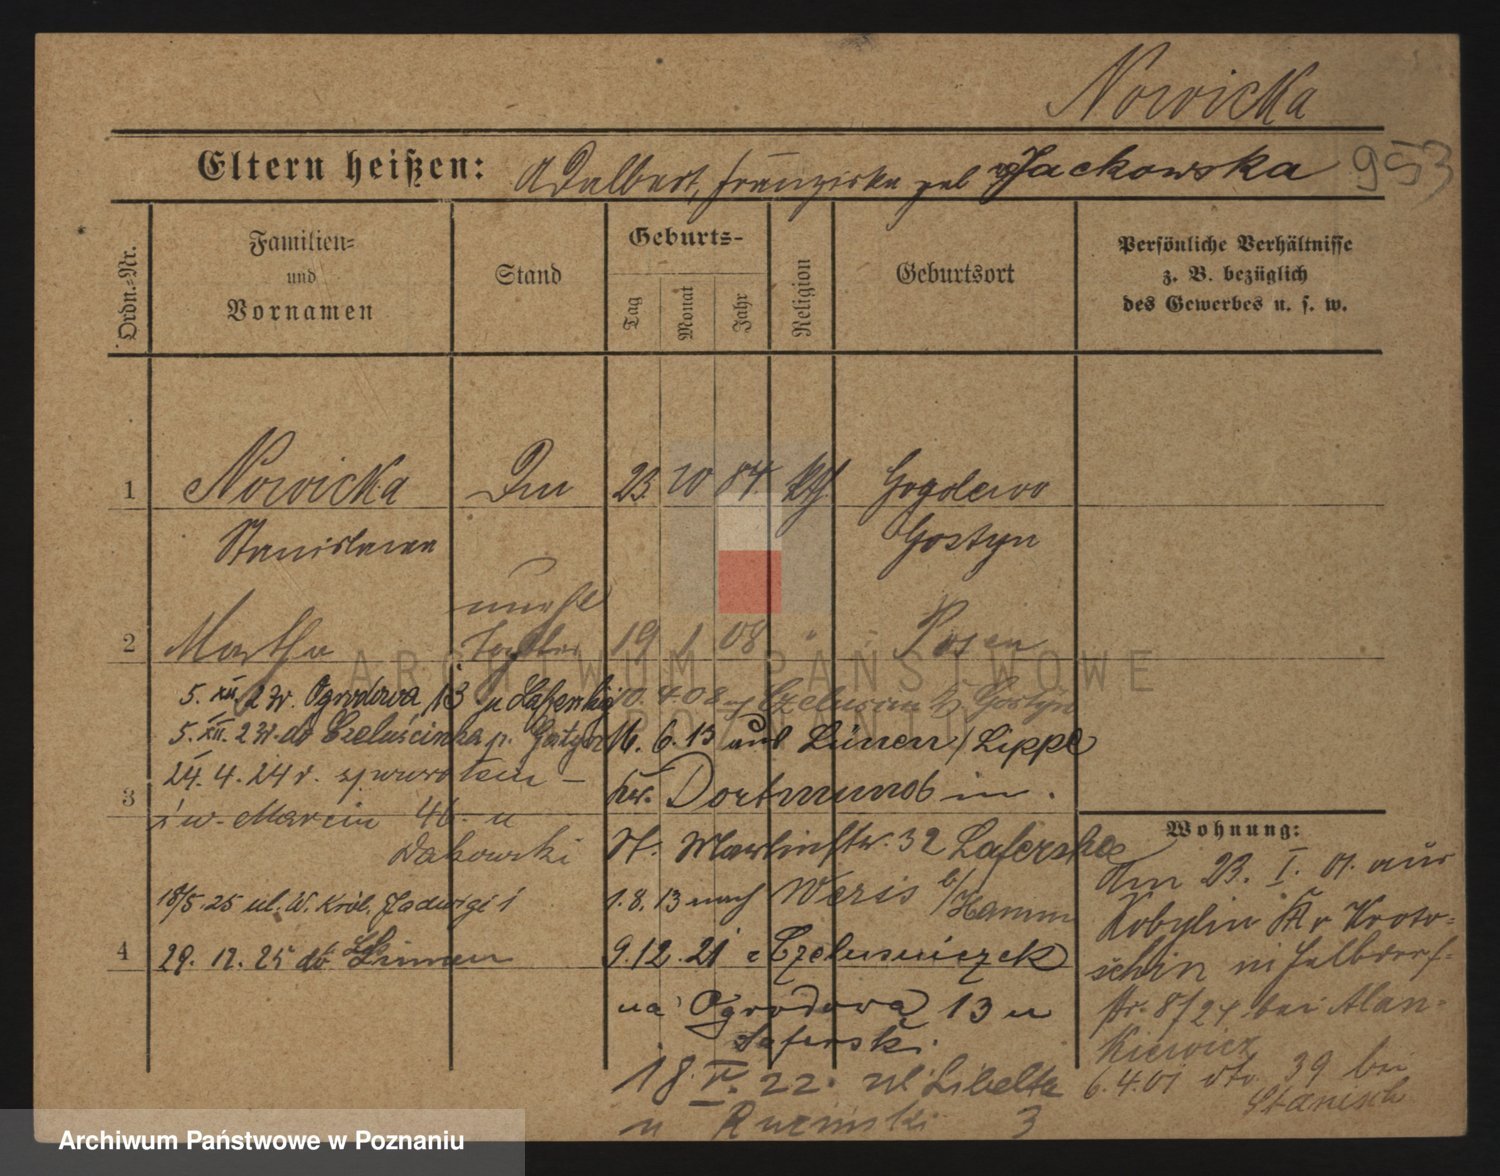 Nowicka
Eltern heißen: Adalbert, Franziska geb Jackowska 953
Ordn.-Nr.
Familien-
und
Vornamen
Stand
Geburts-
Tag
Monat
Jahr
Religion
Geburtsort
Persönliche Verhältnisse
z. B. bezüglich
des Gewerbes u. s. w.
1 Nowicka 23. 10 84. Gogolewo
Stanislawa Gostyn
unehl
2 Martha Tochter 19 1 08 " Posen
5. XII. 23r. Ogrodowa 13 u Laferski 10. 4. 08 Gostyn
5. XII. 23r. do p. 16. 6. 13 aus Lünen / Lippe
24. 4. 24 r.
3 Kr. Dortmund in .
św. Marcin 46. u
Dakowski St. Martinstr. 32 Laferska
Wohnung:
18/5. 25 ul. Król. Jadwigi 1 1. 8. 13 nach b/ Hamm
Am 23. I. 01. aus
Kobylin Kr Kroto-
4 29. 12. 25 do 9. 12. 21
schin in Halbdorf-
na Ogrodowa 13 u
str. 8/24 bei Alan-
Laferski.
kiewicz
18. V. 22. ul Libelta
6. 4. 01 dto. 39 bei
Stanisch
u 3
ARCHIWUM PAŃSTWOWE
W POZNANIU
Archiwum Państwowe w Poznaniu